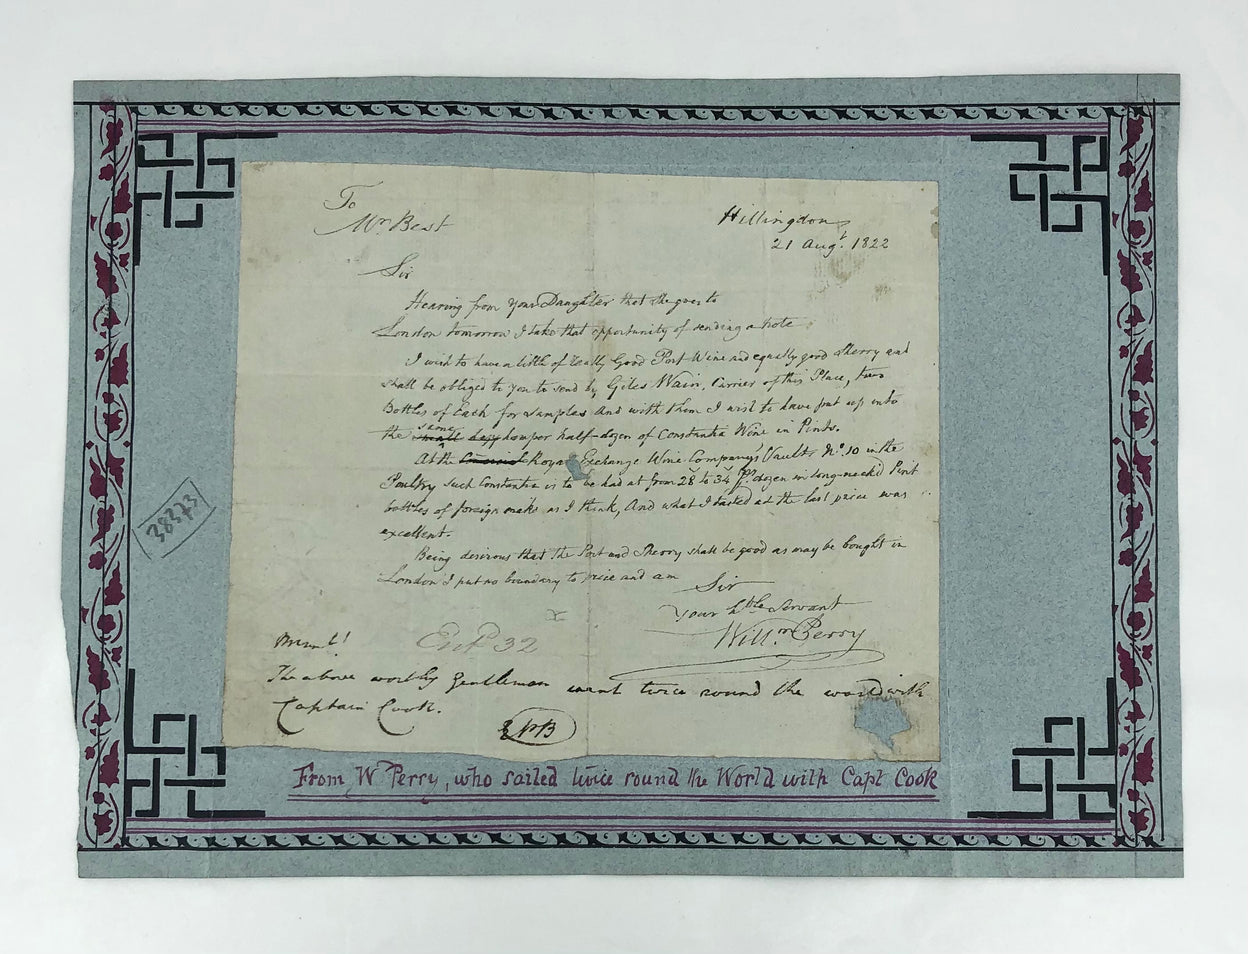 To
Mr. Best
Hillingdon
21 Augt. 1822
Sir
Hearing from your Daughter that she goes to
London tomorrow I take that opportunity of sending a Note
I wish to have a little of really Good Port Wine and equally good Sherry and
shall be obliged to you to send by Giles Wain, Carrier of this Place, two
Bottles of Each for samples and with them I wish to have put up into
the same hamper half-dozen of Constantia Wine in Pints.
At the Royal Exchange Wine Company's Vaults, No. 10 in the
Poultry such Constantia is to be had at from 28 to 34 pr. dozen in long-necked Pint
bottles of foreign make as I think, And what I tasted at the last price was
excellent.
Being desirous that the Port and Sherry shall be good as may be bought in
London I put no boundary to price and am
Sir
Your hble Servant
Willm Perry
x
The above worthy Gentleman went twice round the world with
Captain Cook.
From W Perry, who sailed twice round the World with Capt Cook
38373